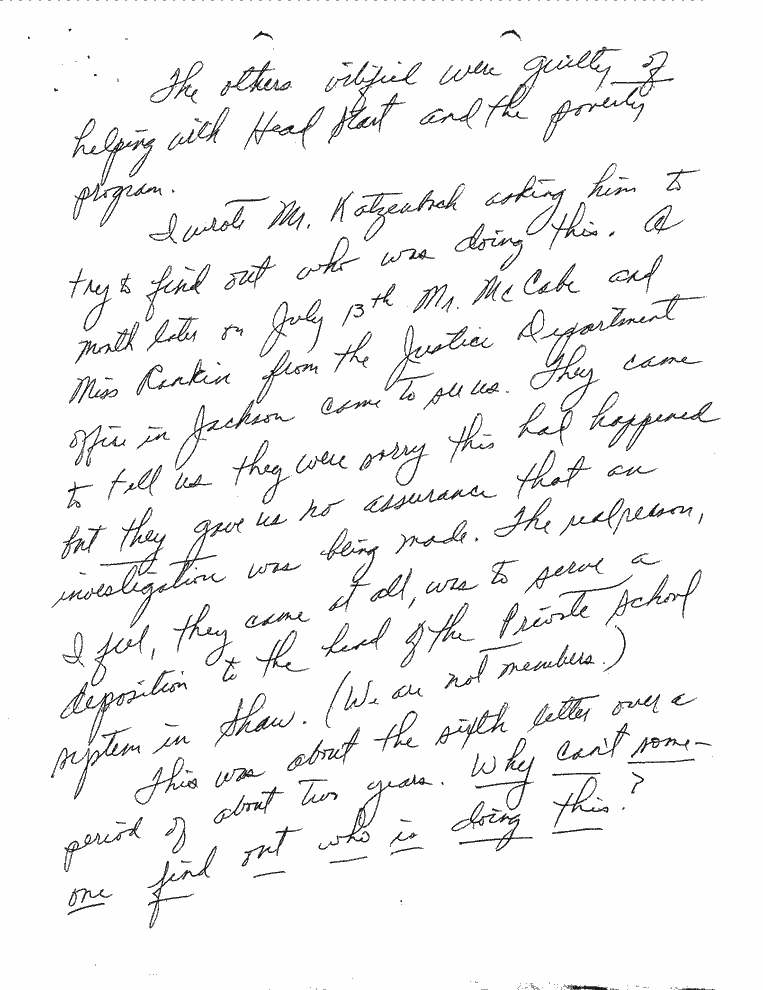 The others vilified were guilty of
helping with Head Start and the poverty
program.
I wrote Mr. Katzenbach asking him to
try to find out who was doing this. A
month later on July 13th Mr. McCabe and
Miss Rankin from the Justice Department
office in Jackson came to see us. They came
to tell us they were sorry this had happened
but they gave us no assurance that an
investigation was being made. The real reason,
I feel, they came at all, was to serve a
deposition to the head of the Private School
system in Shaw. (We are not members.)
This was about the sixth letter over a
period of about two years. Why can't some-
one find out who is doing this?